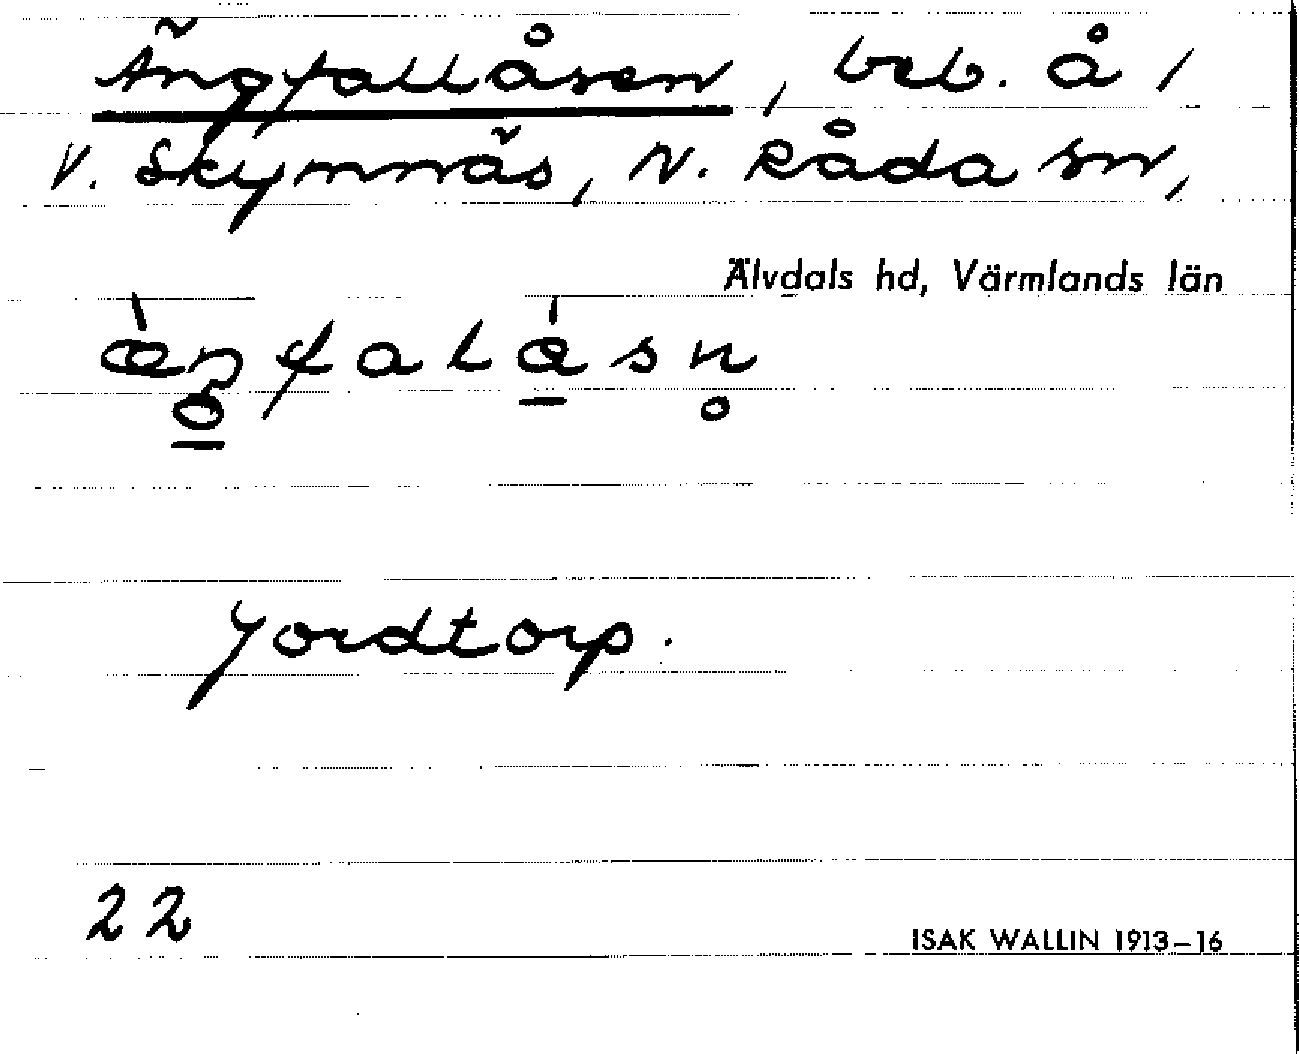 Ängfallåsen, beb. å /
V. Skymnäs, N. Råda sn,
Älvdals hd, Värmlands län
Jordtorp.
22
ISAK WALLIN 1913–16